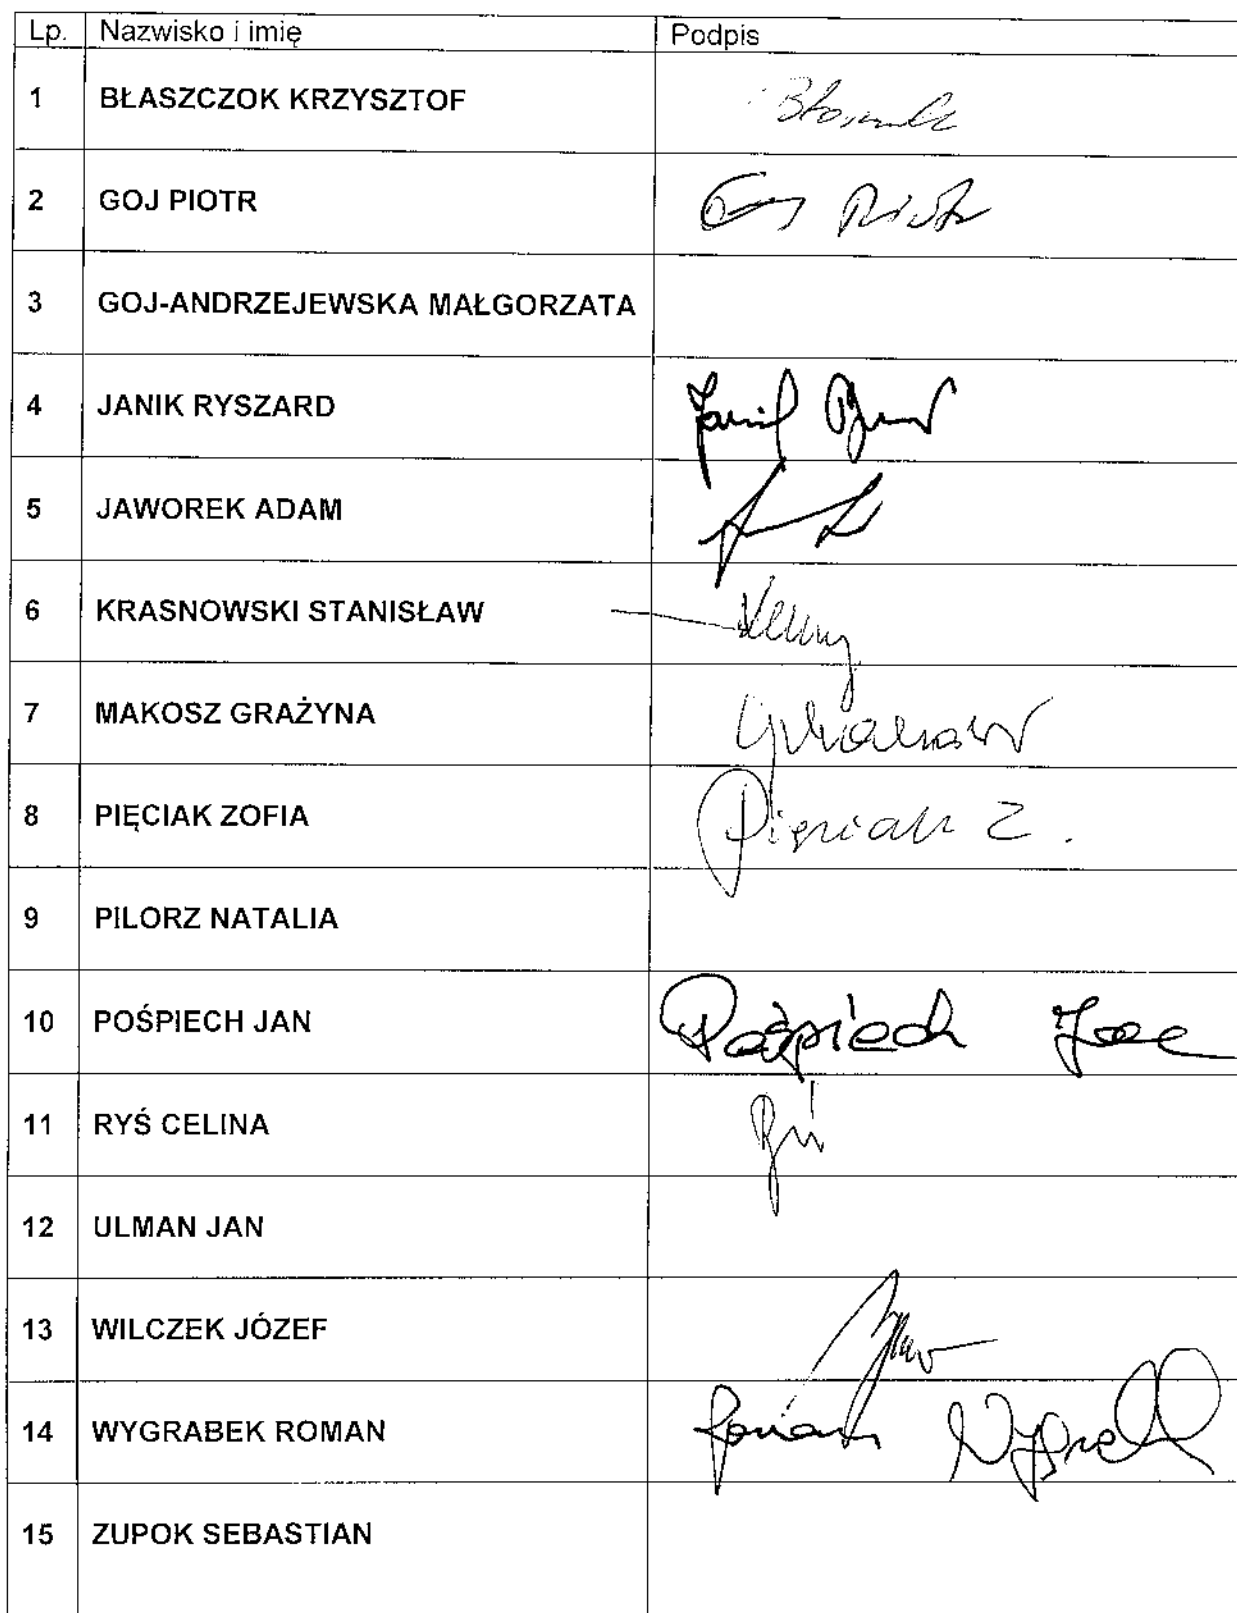 Lp. Nazwisko i imię Podpis
1 BŁASZCZOK KRZYSZTOF
2 GOJ PIOTR Goj Piotr
3 GOJ-ANDRZEJEWSKA MAŁGORZATA
4 JANIK RYSZARD Janik
5 JAWOREK ADAM
6 KRASNOWSKI STANISŁAW
7 MAKOSZ GRAŻYNA
8 PIĘCIAK ZOFIA Pięciak Z.
9 PILORZ NATALIA
10 POŚPIECH JAN Pośpiech Jan
11 RYŚ CELINA Ryś
12 ULMAN JAN
13 WILCZEK JÓZEF
14 WYGRABEK ROMAN Roman
15 ZUPOK SEBASTIAN